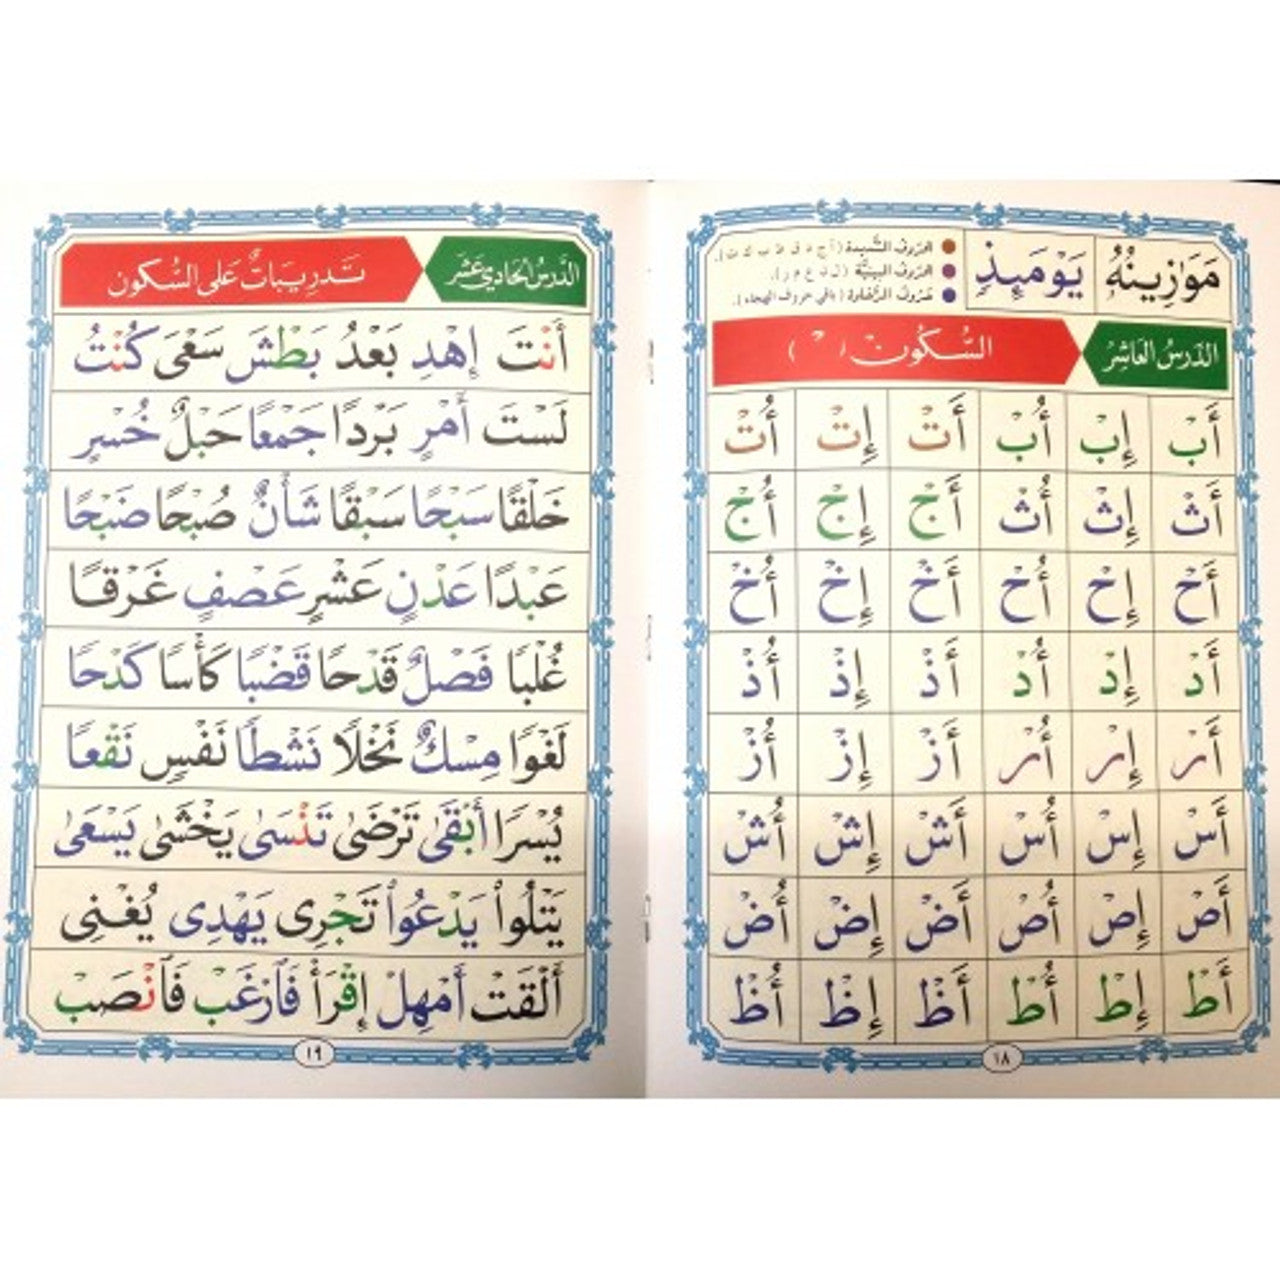 مَوَٰزِينُهُۥ يَوْمَئِذٍ
الحروف الشديدة (أ ج د ق ط ب ك ت).
الحروف البينيَّة (ل ن ع م ر).
حروف الرخاوة (باقي حروف الهجاء).
الدَّرسُ العَاشِرُ السُّكُونُ ( ْ )
أَبْ إِبْ أُبْ أَتْ إِتْ أُتْ
أَثْ إِثْ أُثْ أَجْ إِجْ أُجْ
أَحْ إِحْ أُحْ أَخْ إِخْ أُخْ
أَدْ إِدْ أُدْ أَذْ إِذْ أُذْ
أَرْ إِرْ أُرْ أَزْ إِزْ أُزْ
أَسْ إِسْ أُسْ أَشْ إِشْ أُشْ
أَصْ إِصْ أُصْ أَضْ إِضْ أُضْ
أَطْ إِطْ أُطْ أَظْ إِظْ أُظْ
١٨
الدَّرسُ الحَادِي عَشَر تَدرِيبَاتٌ عَلَى السُّكُون
أَنْتَ إِهْدِ بَعْدُ بَطْشَ سَعْىَ كُنْتُ
لَسْتَ أَمْرٍ بَرْدًا جَمْعًا حَبْلٌ خُسْرٍ
خَلْقًا سَبْحًا سَبْقًا شَأْنٌ صُبْحًا ضَبْحًا
عَبْدًا عَدْنٍ عَشْرٍ عَصْفٍ غَرْقًا
غُلْبًا فَصْلٌ قَدْحًا قَضْبًا كَأْسًا كَدْحًا
لَغْوًا مِسْكٌ نَخْلًا نَشْطًا نَفْسٍ نَقْعًا
يُسْرًا أَبْقَىٰ تَرْضَىٰ تَنْسَىٰ يَخْشَىٰ يَسْعَىٰ
يَتْلُوا۟ يَدْعُوا۟ تَجْرِى يَهْدِى يُغْنِى
أَلْقَتْ أَمْهِلْ إِقْرَأْ فَٱرْغَبْ فَٱنْصَبْ
١٩